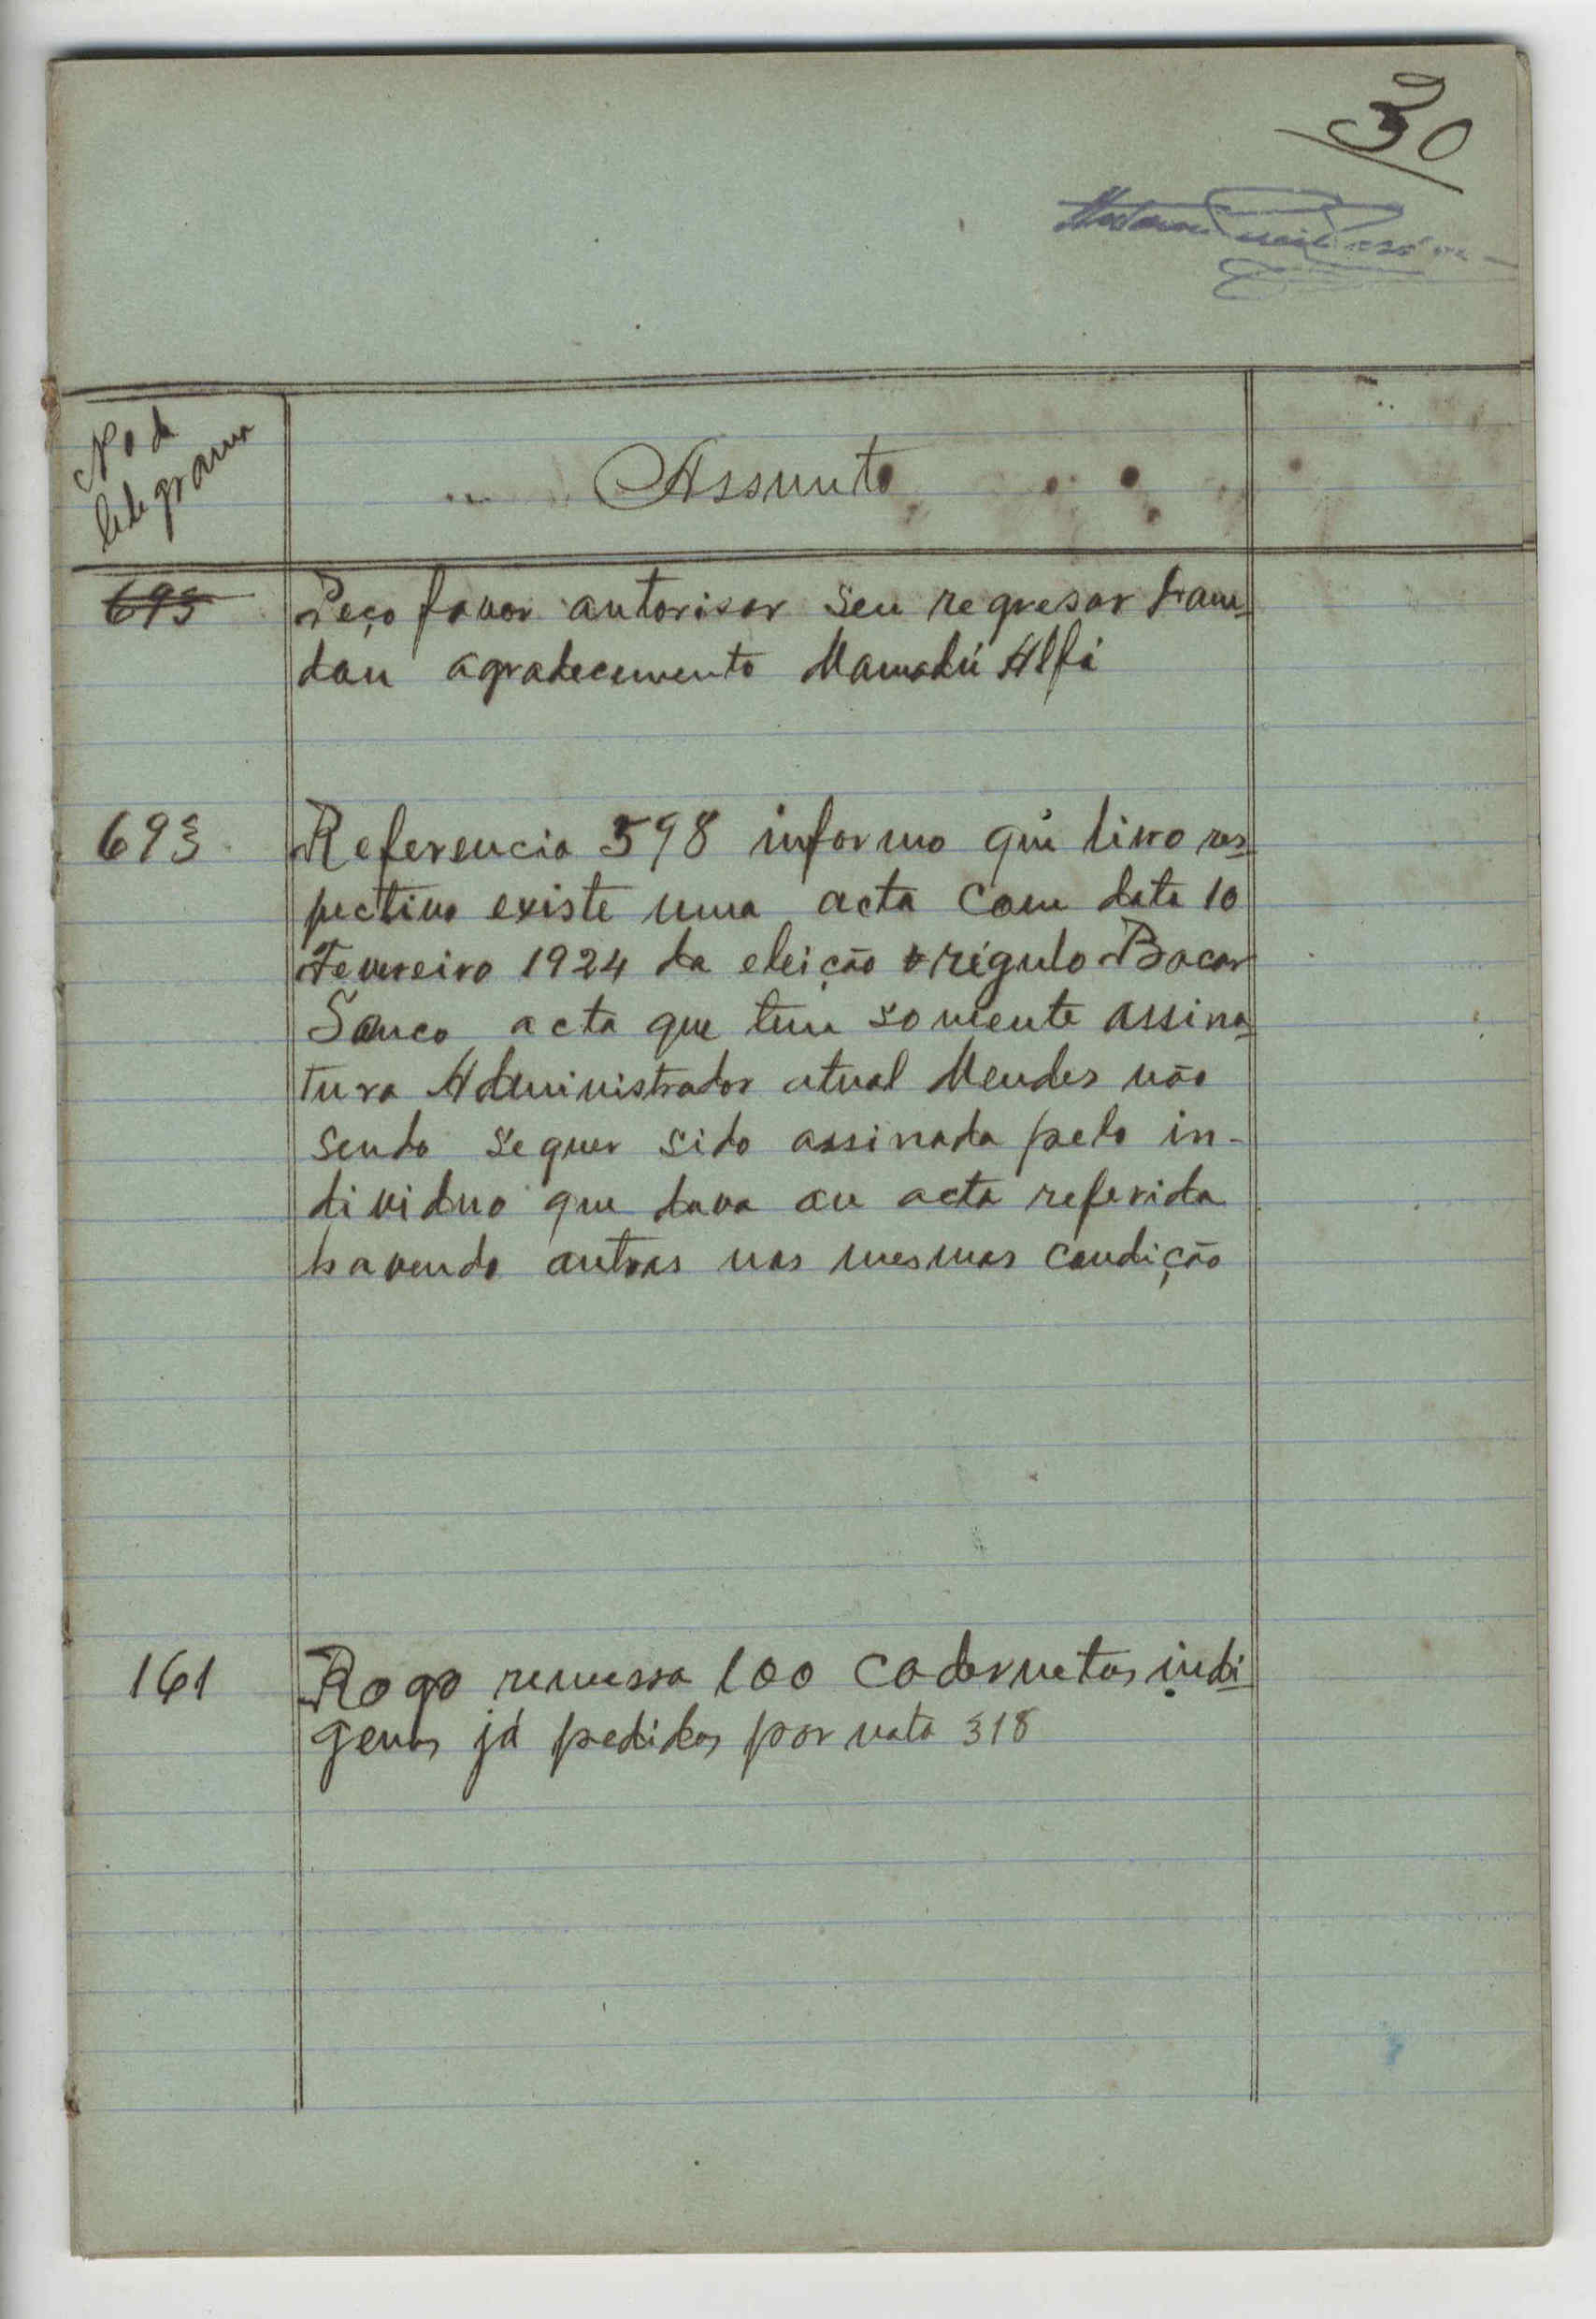 30
No da
telegrama
Assunto
693 Peço favor autorisar seu regresar Fram-
dan agradecemento Mamadú Alfá
693 Referencia 598 informo que livro res-
pectivo existe uma acta com data 10
Fevereiro 1924 da eleição régulo Bacar
Sanco acta que tem somente assina-
tura Administrador atual Mendes não
sendo sequer sido assinada pelo in-
dividuo que lavra acta referida
havendo outras nas mesmas condição
161 Rogo remessa 100 cadernetas indi-
genas já pedidas por nota 318